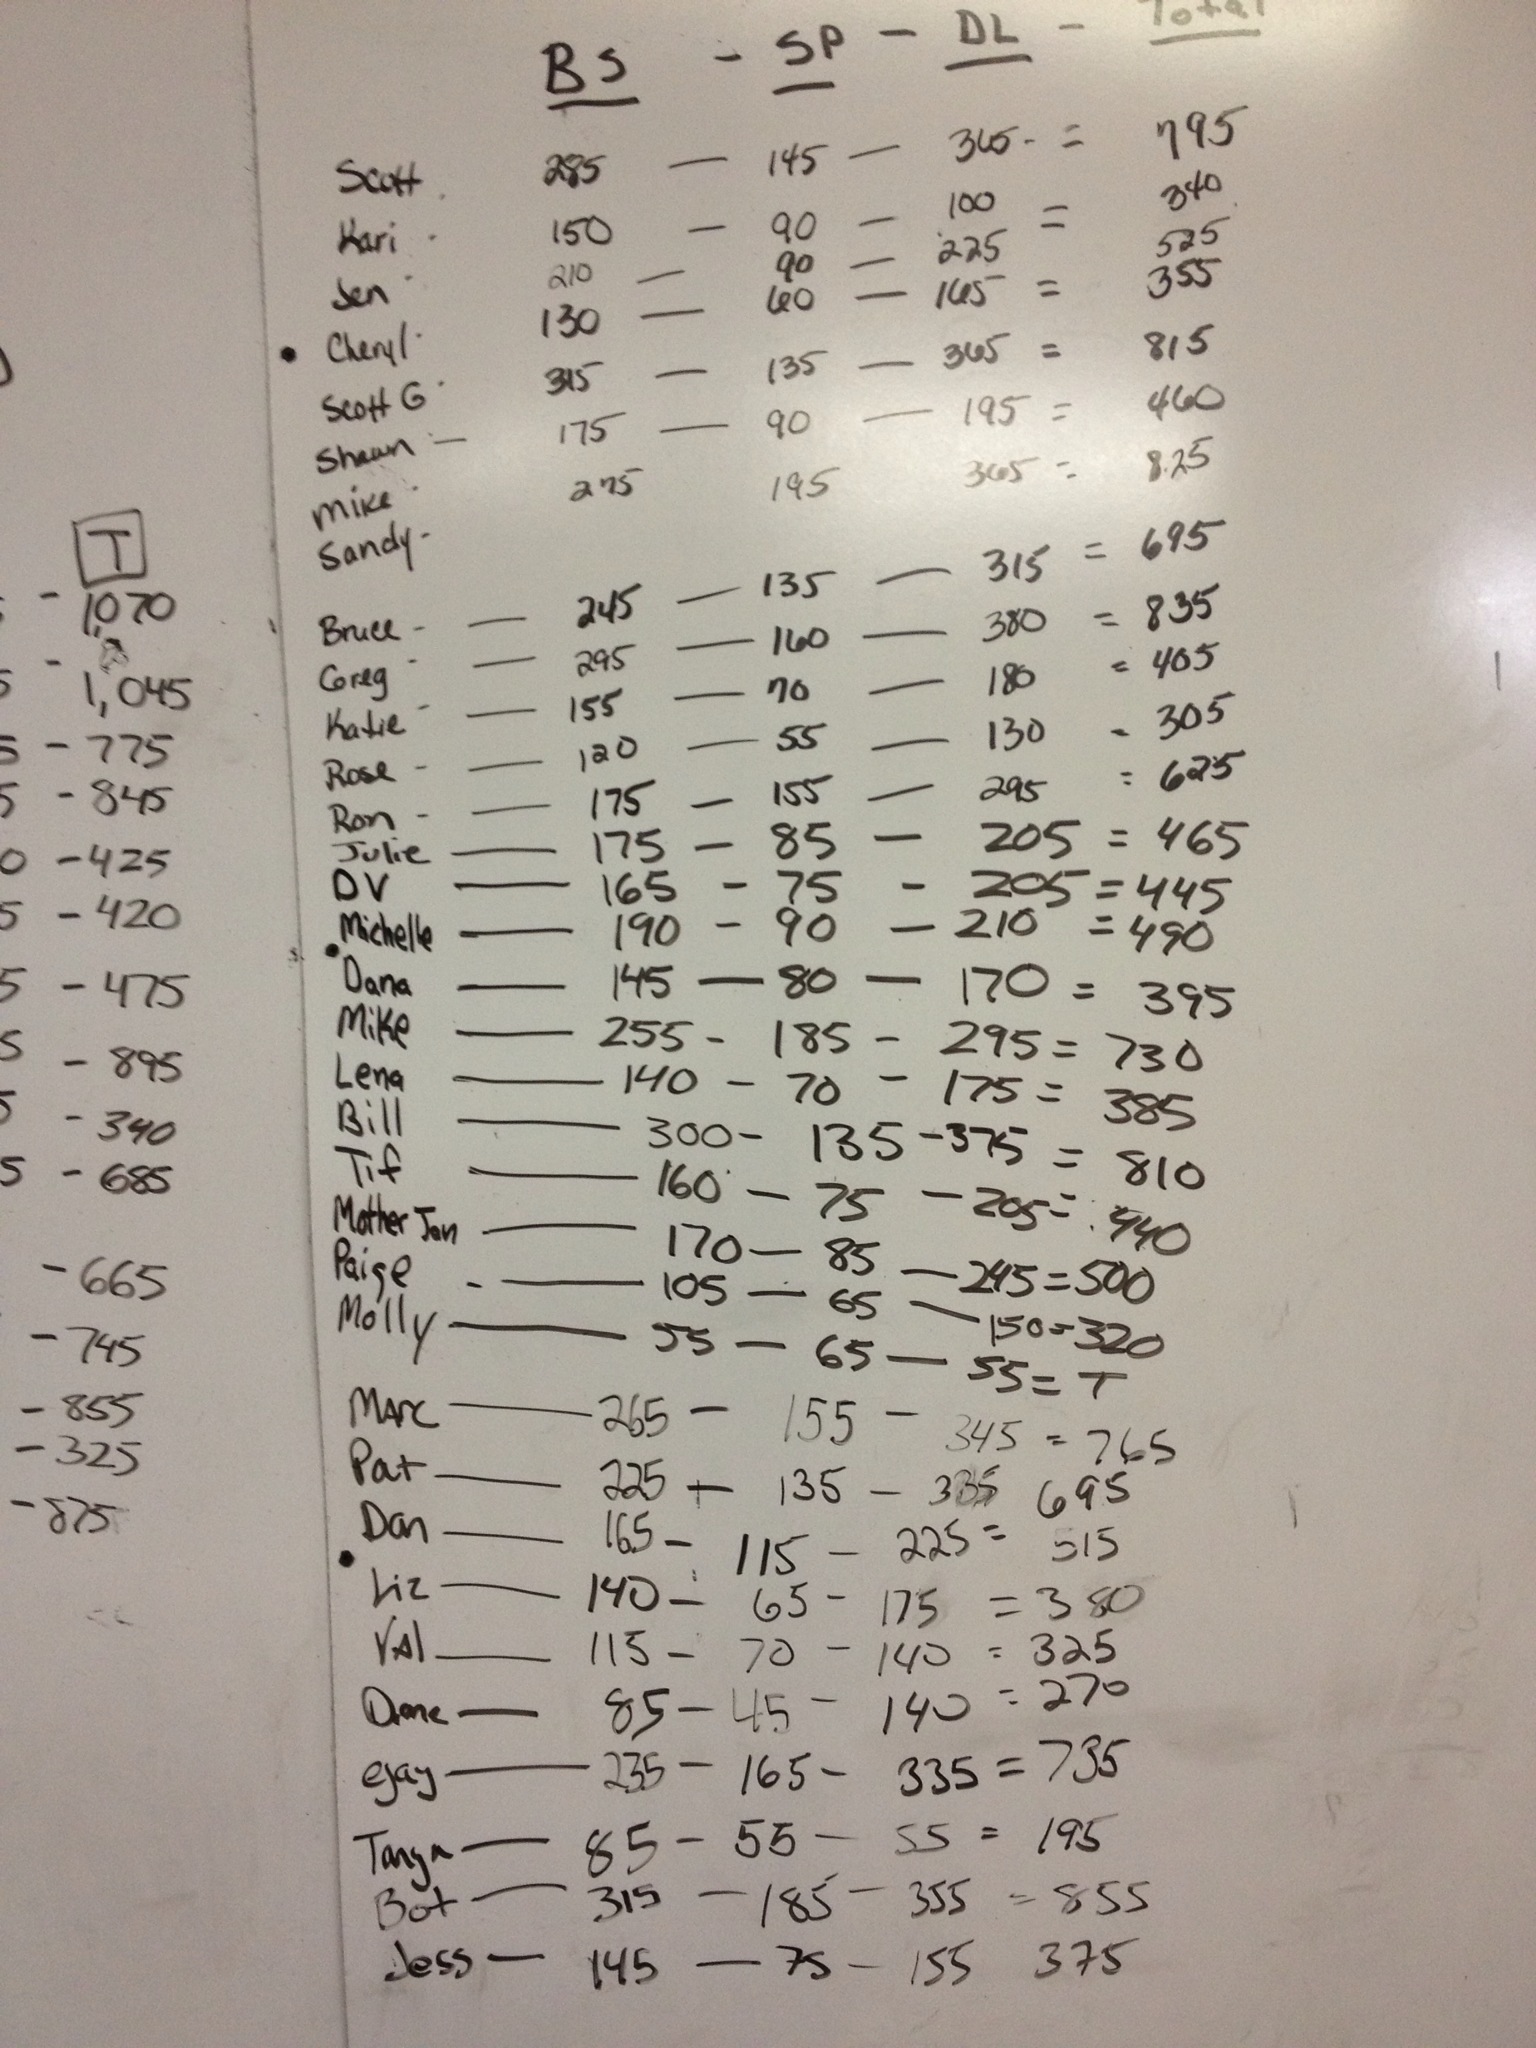 BS - SP - DL - Total
Scott 285 — 145 — 365 - = 795
Kari - 150 - 90 - 100 = 340
Jen - 210 - 90 - 225 525
• Cheryl - 130 — 60 — 165 = 355
Scott G - 315 - 135 - 365 = 815
Shawn - 175 — 90 — 195 = 460
Mike - 275 195 365 = 825
Sandy -
Bruce - — 245 — 135 — 315 = 695
Greg - — 295 — 160 — 380 = 835
Katie - — 155 — 70 — 180 = 405
Rose - — 120 — 55 — 130 = 305
Ron - — 175 - 155 — 295 = 625
Julie — 175 - 85 - 205 = 465
DV — 165 - 75 - 205 = 445
Michelle — 190 - 90 - 210 = 490
• Dana — 145 — 80 — 170 = 395
Mike — 255 - 185 - 295 = 730
Lena — 140 - 70 - 175 = 385
Bill — 300 - 135 - 375 = 810
Tif — 160 - 75 - 205 = 440
Mother Jon — 170 — 85 — 245 = 500
Paige - — 105 — 65 — 150 = 320
Molly — 55 — 65 — 55 = T
Marc — 265 - 155 - 345 = 765
Pat — 225 - 135 - 335 695
Dan — 165 - 115 - 225 = 515
• Liz — 140 - 65 - 175 = 380
VAl — 115 - 70 - 140 = 325
Diane — 85 - 45 - 140 = 270
ejay — 235 - 165 - 335 = 735
Tanya — 85 - 55 - 55 = 195
Bot — 315 - 185 - 355 = 855
Jess — 145 — 75 - 155 375
T
- 1,070
- 1,045
5 - 775
5 - 845
0 - 425
5 - 420
5 - 475
5 - 895
5 - 340
5 - 685
- 665
- 745
- 855
- 325
- 875